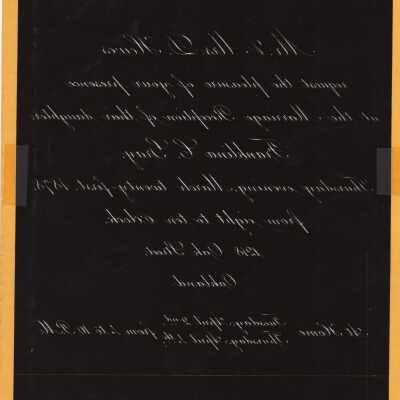 Mr. & Mrs. D. Hewes
request the pleasure of your presence
at the Marriage Reception of their daughter
Franklina C. Gray.
Thursday evening, March twenty-first, 1878.
from eight to ten o'clock.
1298 Oak Street
Oakland
At Home
Tuesday, April 2nd.
Thursday, April
from 2 to 10 P.M.